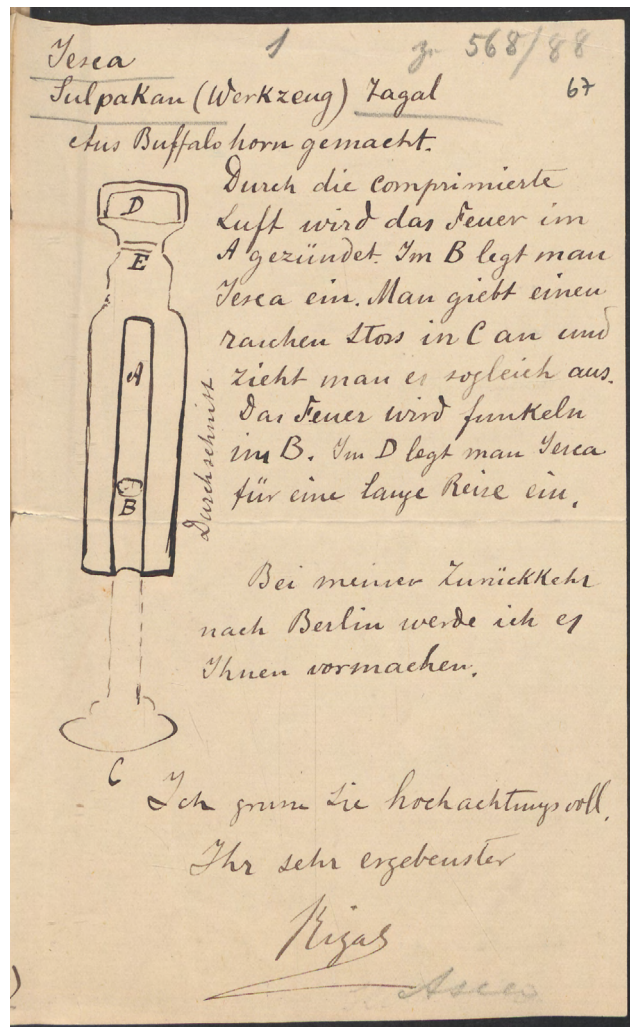 1
zu 568/88
67
Yesca
Sulpakan (Werkzeug) Tagal
Aus Buffalohorn gemacht.
Durch die comprimierte
Luft wird das Feuer im
A gezündet. Im B legt man
Yesca ein. Man giebt einen
raschen Stoss in C an und
zieht man es sogleich aus.
Das Feuer wird funkeln
im B. Im D legt man Yesca
für eine lange Reise ein.
D
E
A
B
Durchschnitt
C
Bei meiner Zurückkehr
nach Berlin werde ich es
Ihnen vormachen.
Ich grüsse Sie hochachtungsvoll.
Ihr sehr ergebenster
Rizal